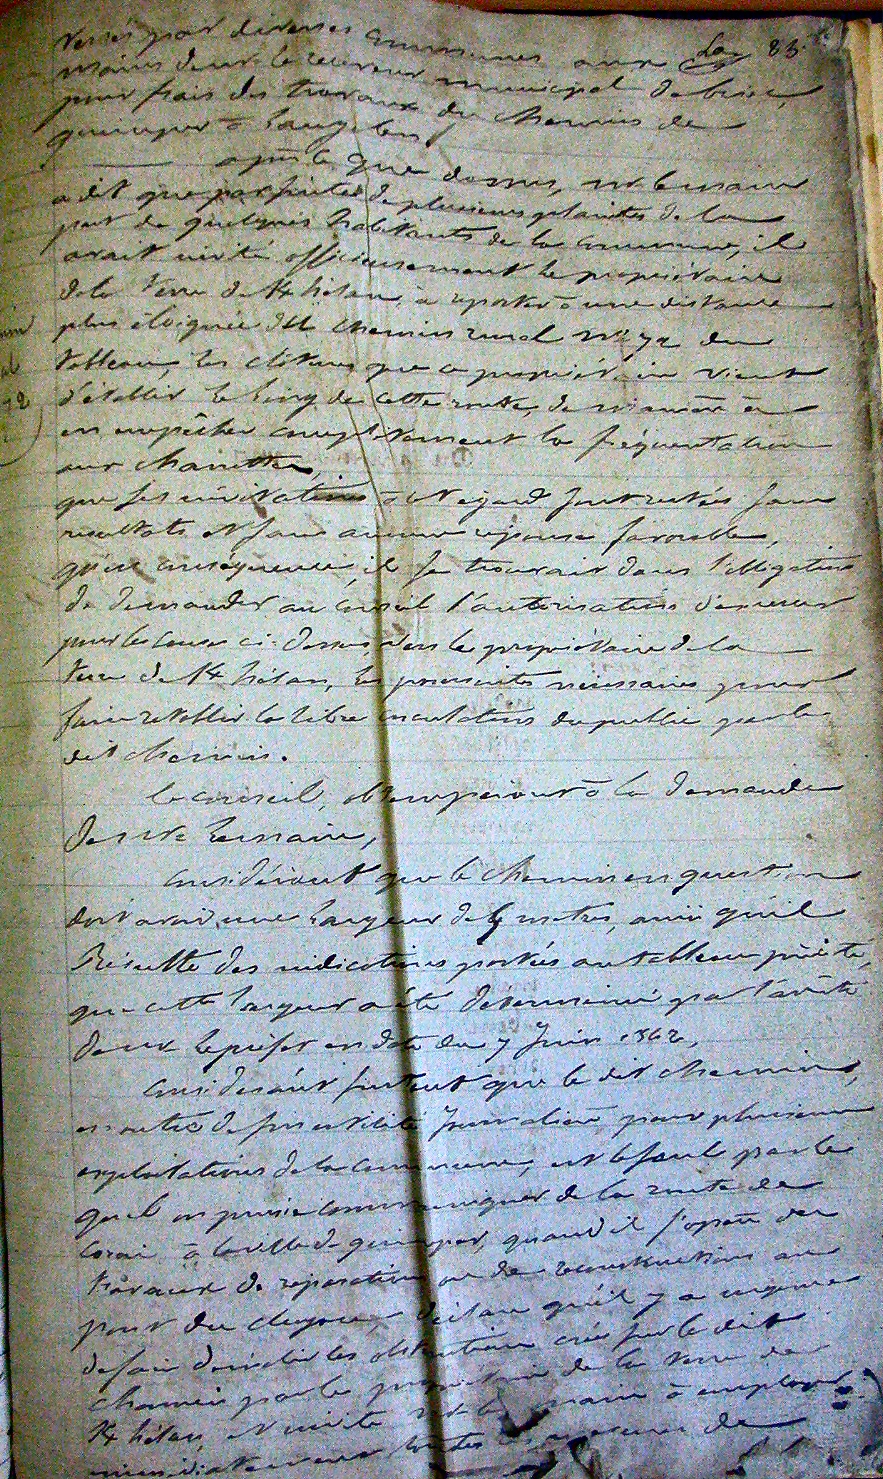 83.
versés par diverses communes aux
mains de mr le receveur municipal de
pour frais des travaux du chemin de
quimper à
après ce que dessus, mr le maire
a dit que par suite de plusieurs plaintes de la
part de quelques habitants de la commune, il
avait invité officieusement le propriétaire
de la terre de à reporter à une distance
plus éloignée du chemin rural no 72 du
tableau, les clôtures que ce propriétaire vient
d'établir le long de cette route, de manière à
en empêcher complètement la fréquentation
aux charrettes,
que ses invitations à cet égard sont restées sans
résultats et sans aucune réponse favorable,
qu'en conséquence, il se trouvait dans l'obligation
de demander au conseil l'autorisation d'exercer
pour les causes ci-dessus, vers le propriétaire de la
terre de les poursuites nécessaires pour
faire rétablir la libre circulation du public par le
dit chemin.
le conseil, obtempérant à la demande
de mr le maire,
considérant que le chemin en question
doit avoir une largeur de mètres, ainsi qu'il
Résulte des indications portées au tableau précité,
que cette largeur a été déterminée par l'arrêté
de mr le préfet en date du 7 Juin 1862,
considérant surtout que le dit chemin,
en outre de son utilité Journalière pour plusieurs
exploitations de la commune, est le seul par le
quel on puisse communiquer de la route de
Corai à la ville de quimper, quand il s'opère des
travaux de réparation ou de reconstruction au
pont du déclare qu'il y a urgence
de faire démolir les obstructions créées sur le dit
chemin par le propriétaire de la terre de
et invite mr le maire à employer
immédiatement toutes les mesures de